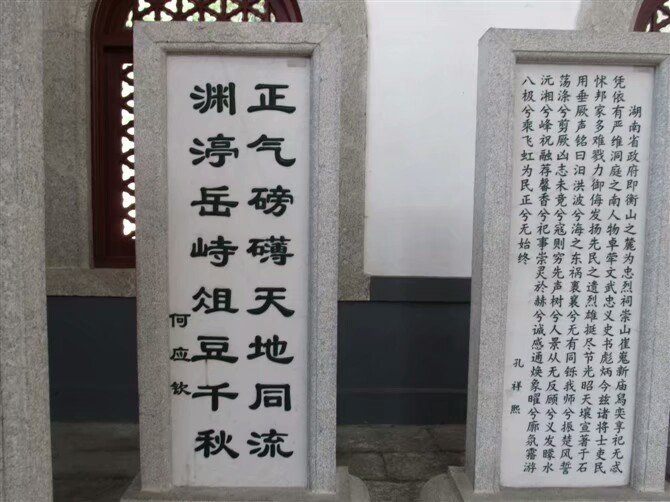 正气磅礴天地同流
渊渟岳峙俎豆千秋
何应钦
湖南省政府即衡山之麓为忠烈祠崇山崔嵬新庙舄奕享祀无忒
凭依有严维洞庭之南人物卓荦文武忠义史书彪炳今兹诸将士吏民
怵邦家多难戮力御侮发扬先民之遗烈雄挺尽节光昭天壤宣著于石
用垂厥声铭曰汨洪波兮海之东祸裹襄兮无有同铄我师兮振楚风誓
荡涤兮剪厥凶志未竟兮寇则穷先声树兮人景从无反顾兮义发矇水
沅湘兮峰祝融荐馨香兮祀事崇灵於赫兮诚感通焕象曜兮廓氛雾游
八极兮乘飞虹为民正兮无始终
孔祥熙